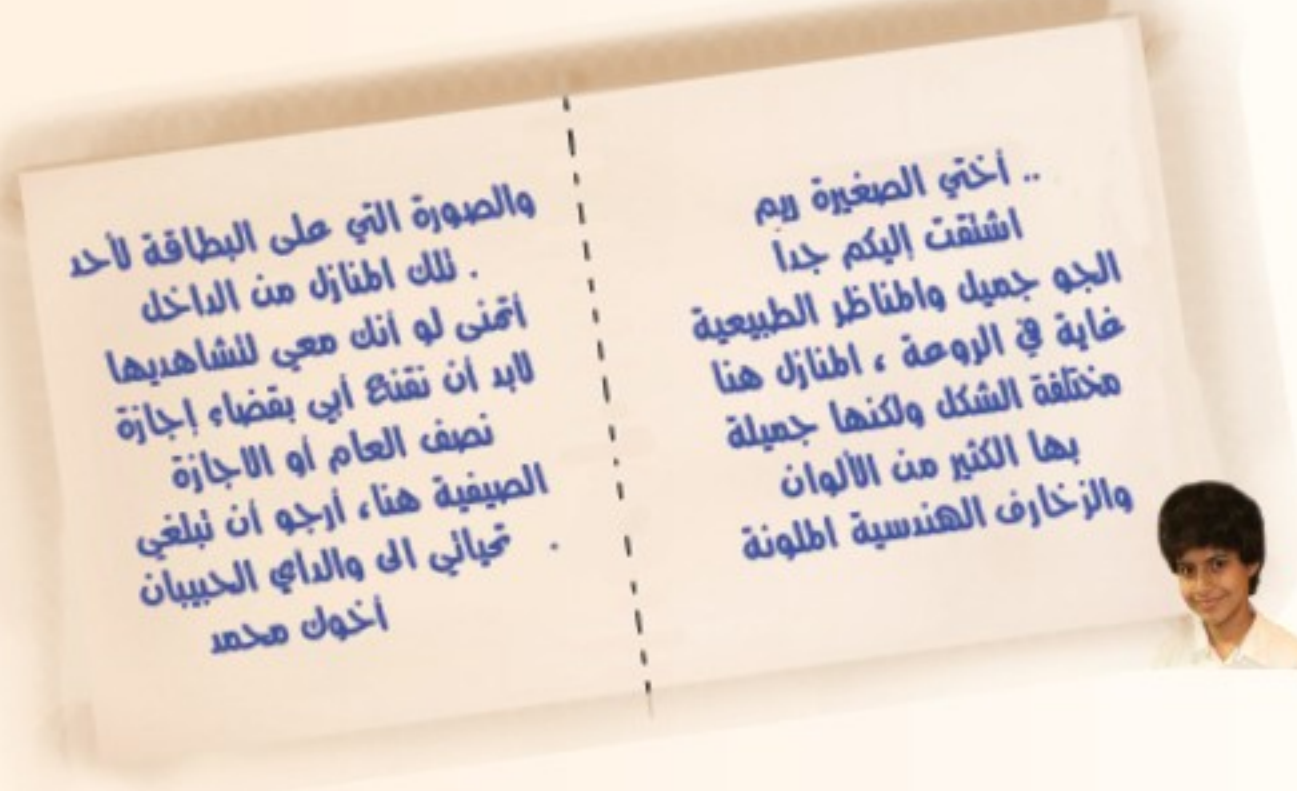 .. أختي الصغيرة ريم
اشتقت إليكم جدا
الجو جميل والمناظر الطبيعية
غاية في الروعة ، المنازل هنا
مختلفة الشكل ولكنها جميلة
بها الكثير من الألوان
والزخارف الهندسية الملونة
والصورة التي على البطاقة لأحد
. تلك المنازل من الداخل
أتمنى لو أنك معي لتشاهديها
لابد أن نقنع أبي بقضاء إجازة
نصف العام أو الاجازة
الصيفية هنا، أرجو أن تبلغي
. تحياتي الى والداي الحبيبان
أخوك محمد